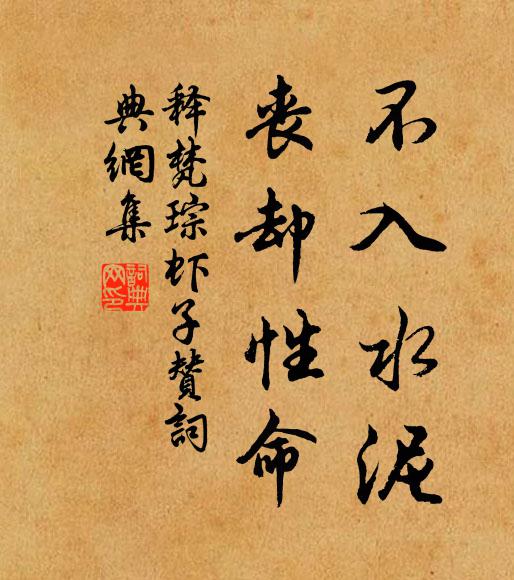 不入水泥
丧却性命
释梵琮虾子赞词
典網集
詞典
网印